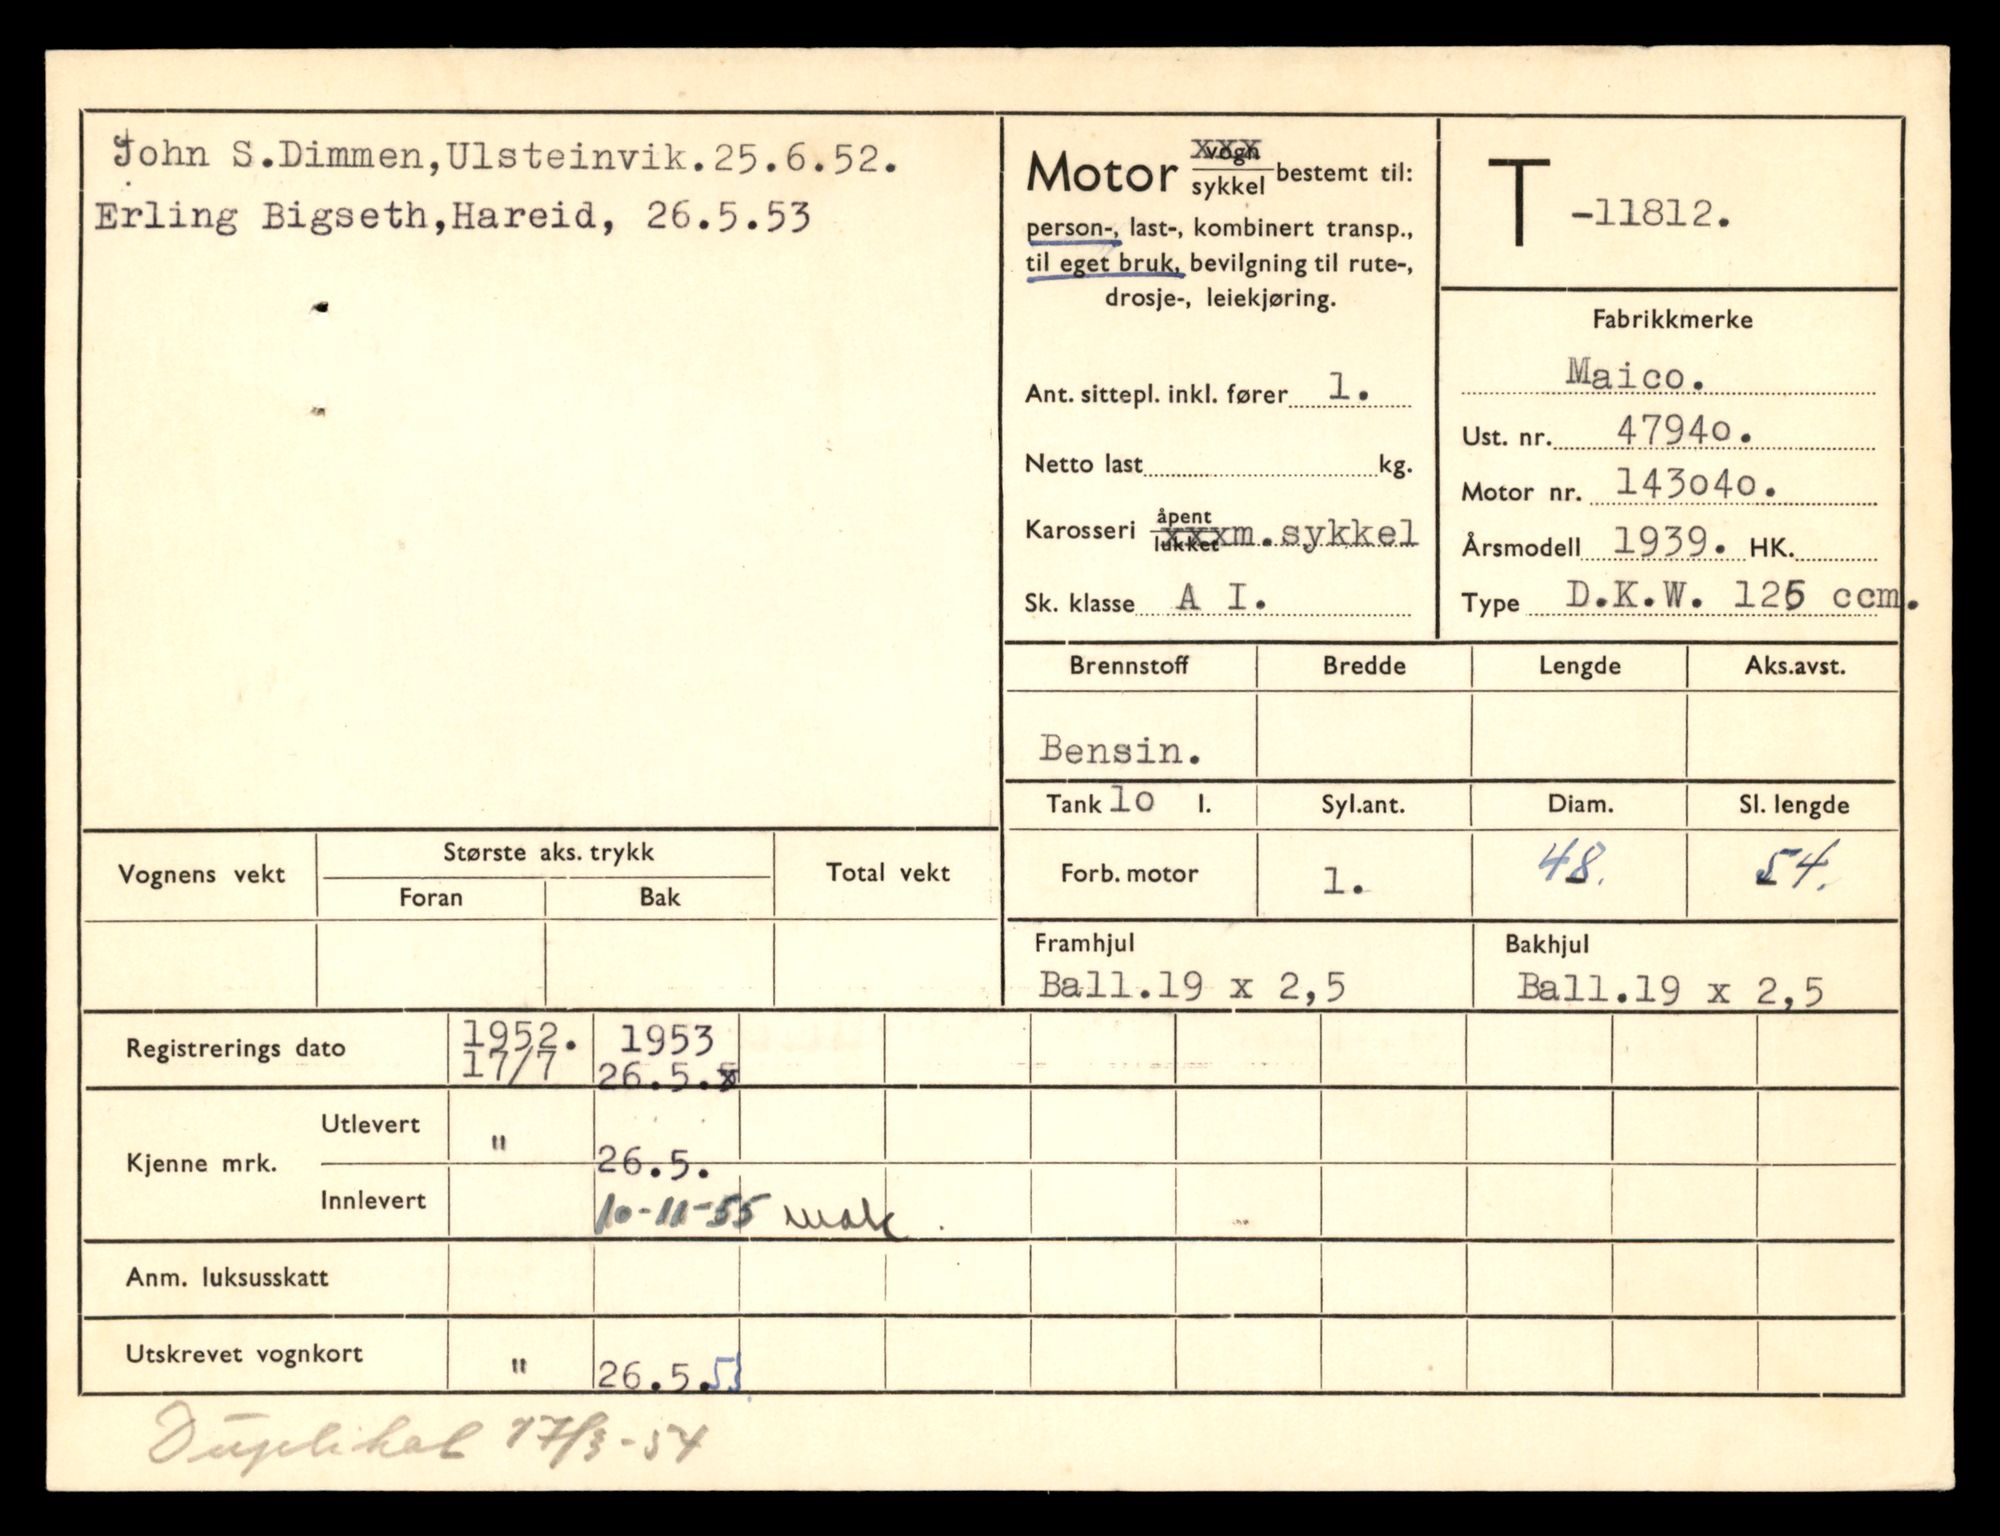 John S.Dimmen,Ulsteinvik.25.6.52.
Erling Bigseth,Hareid, 26.5.53
Motor vogn xxx
sykkel bestemt til:
person-, last-, kombinert transp.,
til eget bruk, bevilgning til rute-,
drosje-, leiekjøring.
Ant. sittepl. inkl. fører 1.
Netto last kg.
Karosseri åpent
lukket xxxm.sykkel
Sk. klasse A I.
T -11812.
Fabrikkmerke
Maico.
Ust. nr. 47940.
Motor nr. 143040.
Årsmodell 1939. HK.
Type D.K.W. 125 ccm.
Brennstoff Bredde Lengde Aks.avst.
Bensin.
Tank 10 l. Syl.ant. Diam. Sl. lengde
Forb. motor 1. 48. 54.
Framhjul Bakhjul
Ball.19 x 2,5 Ball.19 x 2,5
Vognens vekt Største aks. trykk Total vekt
Foran Bak
Registrerings dato 1952. 1953
17/7 26.5.
Kjenne mrk. Utlevert " 26.5.
Innlevert 10-11-55 mak
Anm. luksusskatt
Utskrevet vognkort " 26.5.53
Duplikat 17/3-54